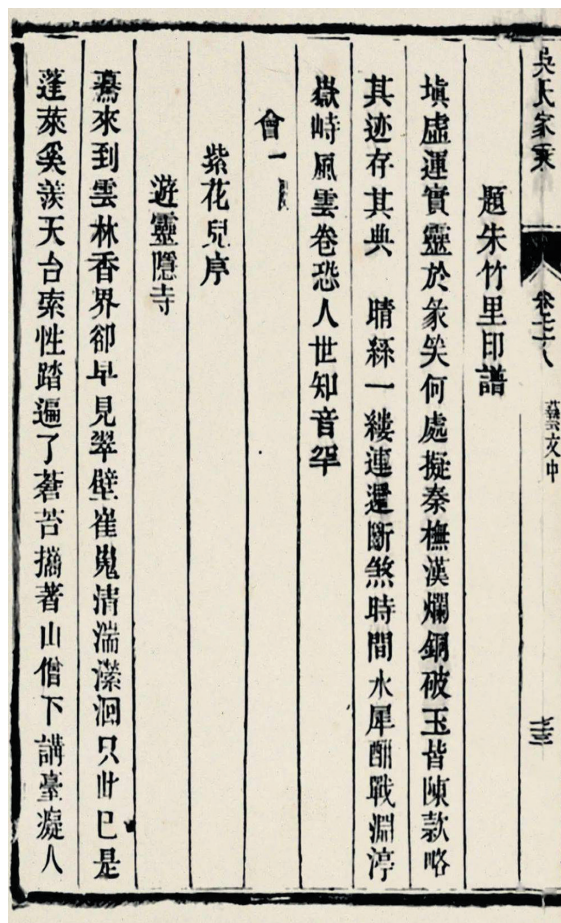 吳氏家乘
藝文中
題朱竹里印譜
塡虛運實靈於彖矣何處擬秦橅漢爛銅破玉皆陳款略
其迹存其典　晴絲一縷連還斷煞時間水犀酣戰淵渟
嶽峙風雲卷恐人世知音罕
會一
紫花兒序
遊靈隱寺
驀來到雲林香界卻早見翠壁崔嵬清湍瀠洄只此巳是
蓬萊奚羨天台索性踏遍了蒼苔攜著山僧下講臺癡人